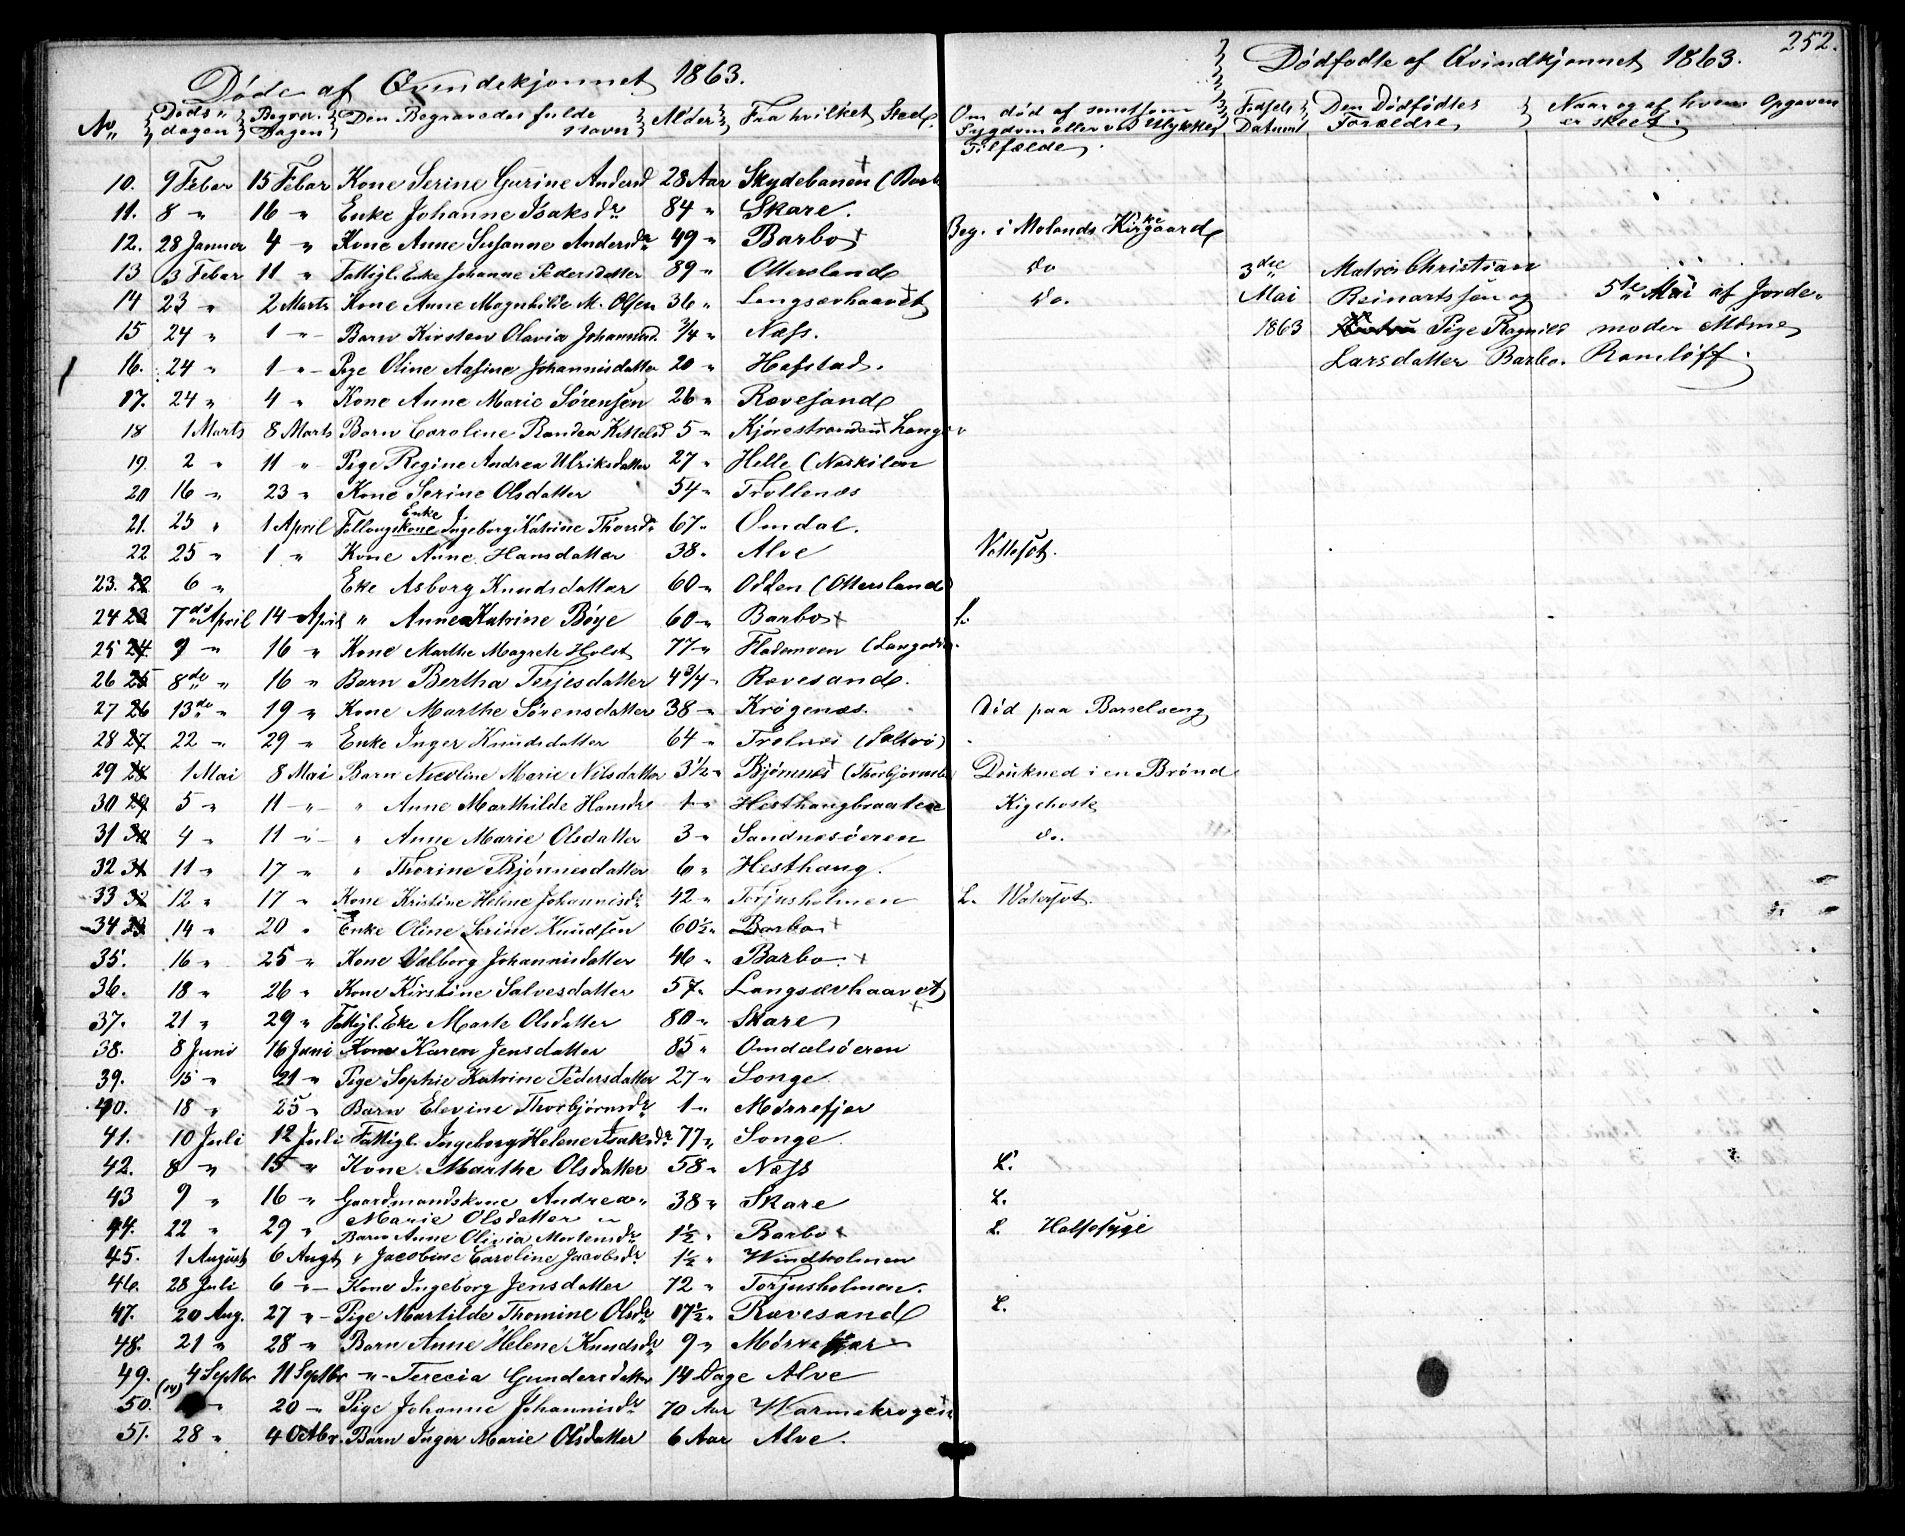 252.
Døde af Qvindekjønnet 1863.
No Døds dagen Begrav. Dagen Den Begravedes fulde Navn Alder Fra hvilket Sted.
10. 9 Febar 15 Febar Kone Serine Gurine Andersd 28 Aar Skydebanen (Barb
11. 8 " 16 " Enke Johanne Isaksdr 84 " Skare.
12. 28 Januar 4 " Kone Anne Susanne Andersdr 49 " Barbo
13 3 Febar 11 " Fattigl. Enke Johanne Pedersdatter 89 " Ottersland
14 23 " 2 Marts Kone Anne Magnhilde M. Olsen 36 " Langsævhaavet
15 24 " 1 " Barn Kirsten Olavia Johansd 3/4 " Næss.
16. 24 " 1 " Pige Oline Aasine Johannisdatter 20 " Hafstad.
17. 24 " 4 " Kone Anne Marie Sørensen 26 " Rævesand
18 1 Marts 8 Marts Barn Caroline Randea Kittelsd 5 " Kjørestranden Langs
19. 2 " 11 " Pige Regine Andrea Ulriksdatter 27 " Helle (Naskilen
20 16 " 23 " Kone Serine Olsdatter 54 " Trollenæs
21. 25 " 1 April Føllougskone Enke Ingeborg Katrine Thorsdr 67 " Omdal.
22 25 " 1 " Kone Anne Hansdatter 38 " Alve
23. 22 6 " Eke Asborg Knudsdatter 60 " Odden (Ottersland)
24 23 7de April 14 April " Anne Katrine Bøye 60 " Barbo
25 24 9 " 16 " Kone Marthe Magrete Holst 77 " Fladenven
26 25 8de " 16 " Barn Bertha Terjesdatter 4 3/4 " Rævesand.
27 26 13de " 19 " Kone Marthe Sørensdatter 38 " Krøgenæs.
28 27 22 " 29 " Enke Inger Knudsdatter 64 " Trolnæs (Saltrø)
29 28 1 Mai 8 Mai Barn Nicoline Marie Nilsdatter 3 1/2 " Bjønnes
30 29 5 " 11 " " Anne Marthilde Hansdr 1 " Hesthaugbraatene
31 30 4 " 11 " " Anne Marie Olsdatter 3 " Sandnesøeren
32 31 11 " 17 " " Thorine Bjønnesdatter 6 " Hesthaug.
33 32 12 " 17 " Kone Kristine Helene Johannisdr 42 " Torjusholmen
34 33 14 " 20 " Enke Oline Serine Knudsen 60 1/2 " Barbo
35. 16 " 25 " Kone Valborg Johannisdatter 46 " Barbo
36. 18 " 26 " Kone Kirstine Salvesdatter 57 " Langsævhaavet
37. 21 " 29 " Fattigl. Eke Marte Olsdatter 80 " Skare
38. 8 Juni 16 Juni Kone Karen Jensdatter 85 " Omdalsøeren
39. 15 " 21 " Pige Sophie Katrine Pedersdatter 27 " Songe
40. 18 " 25 " Barn Elevine Thorbjørnsdr 1 " Mørrefjær
41. 10 Juli 12 Juli Fattigl. Ingeborg Helene Isaksdr 77 " Songe
42. 8 " 15 " Kone Marthe Olsdatter 58 " Næss
43 9 " 16 " Gaardmandskone Andrea 38 " Skare
Marie Olsdatter
44. 22 " 29 " Barn Anne Olivia Mortensdr 1 1/2 " Barbo
45. 1 August 6 Augt " Jacobine Caroline Jacobsdr 1 1/2 " Windholmen
46. 28 Juli 6 " Kone Ingeborg Jensdatter 72 " Torjusholmen.
47. 20 Aug. 27 " Pige Martilde Thomine Olsdr 17 1/2 " Rævesand
48. 21 " 28 " Barn Anne Helene Knudsdr 9 "
49. 4 Septbr 11 Septbr " Terecia Gundersdatter 14 Dage Alve
50. " 20 " Pige Johanne Johannisdr 70 Aar Warmekrogen
51. 28 " 4 Octbr. Barn Inger Marie Olsdatter 6 Aar Alve.
Dødfødte af Qvindkjønnet 1863.
Om død af smitsom Sygdom eller ved Ulykkes Tilfælde Fødsels Datum Den Dødfødtes Forældre Naar og af hvem Opgaven er skeet.
Beg. i Molands Kirkegaard
do
do.
3die Mai 1863
Matros Christian
Reinartssøn og
Pige Ragnild
Larsdatter Barbo.
5te Mai af Jorde-
moder Mdme
Romløff.
Vattesot.
L.
Død paa Barselseng
Druknet i en Brønd
Kighoste
do.
L. Watersot.
L.
L.
L. Halsesyge
L.